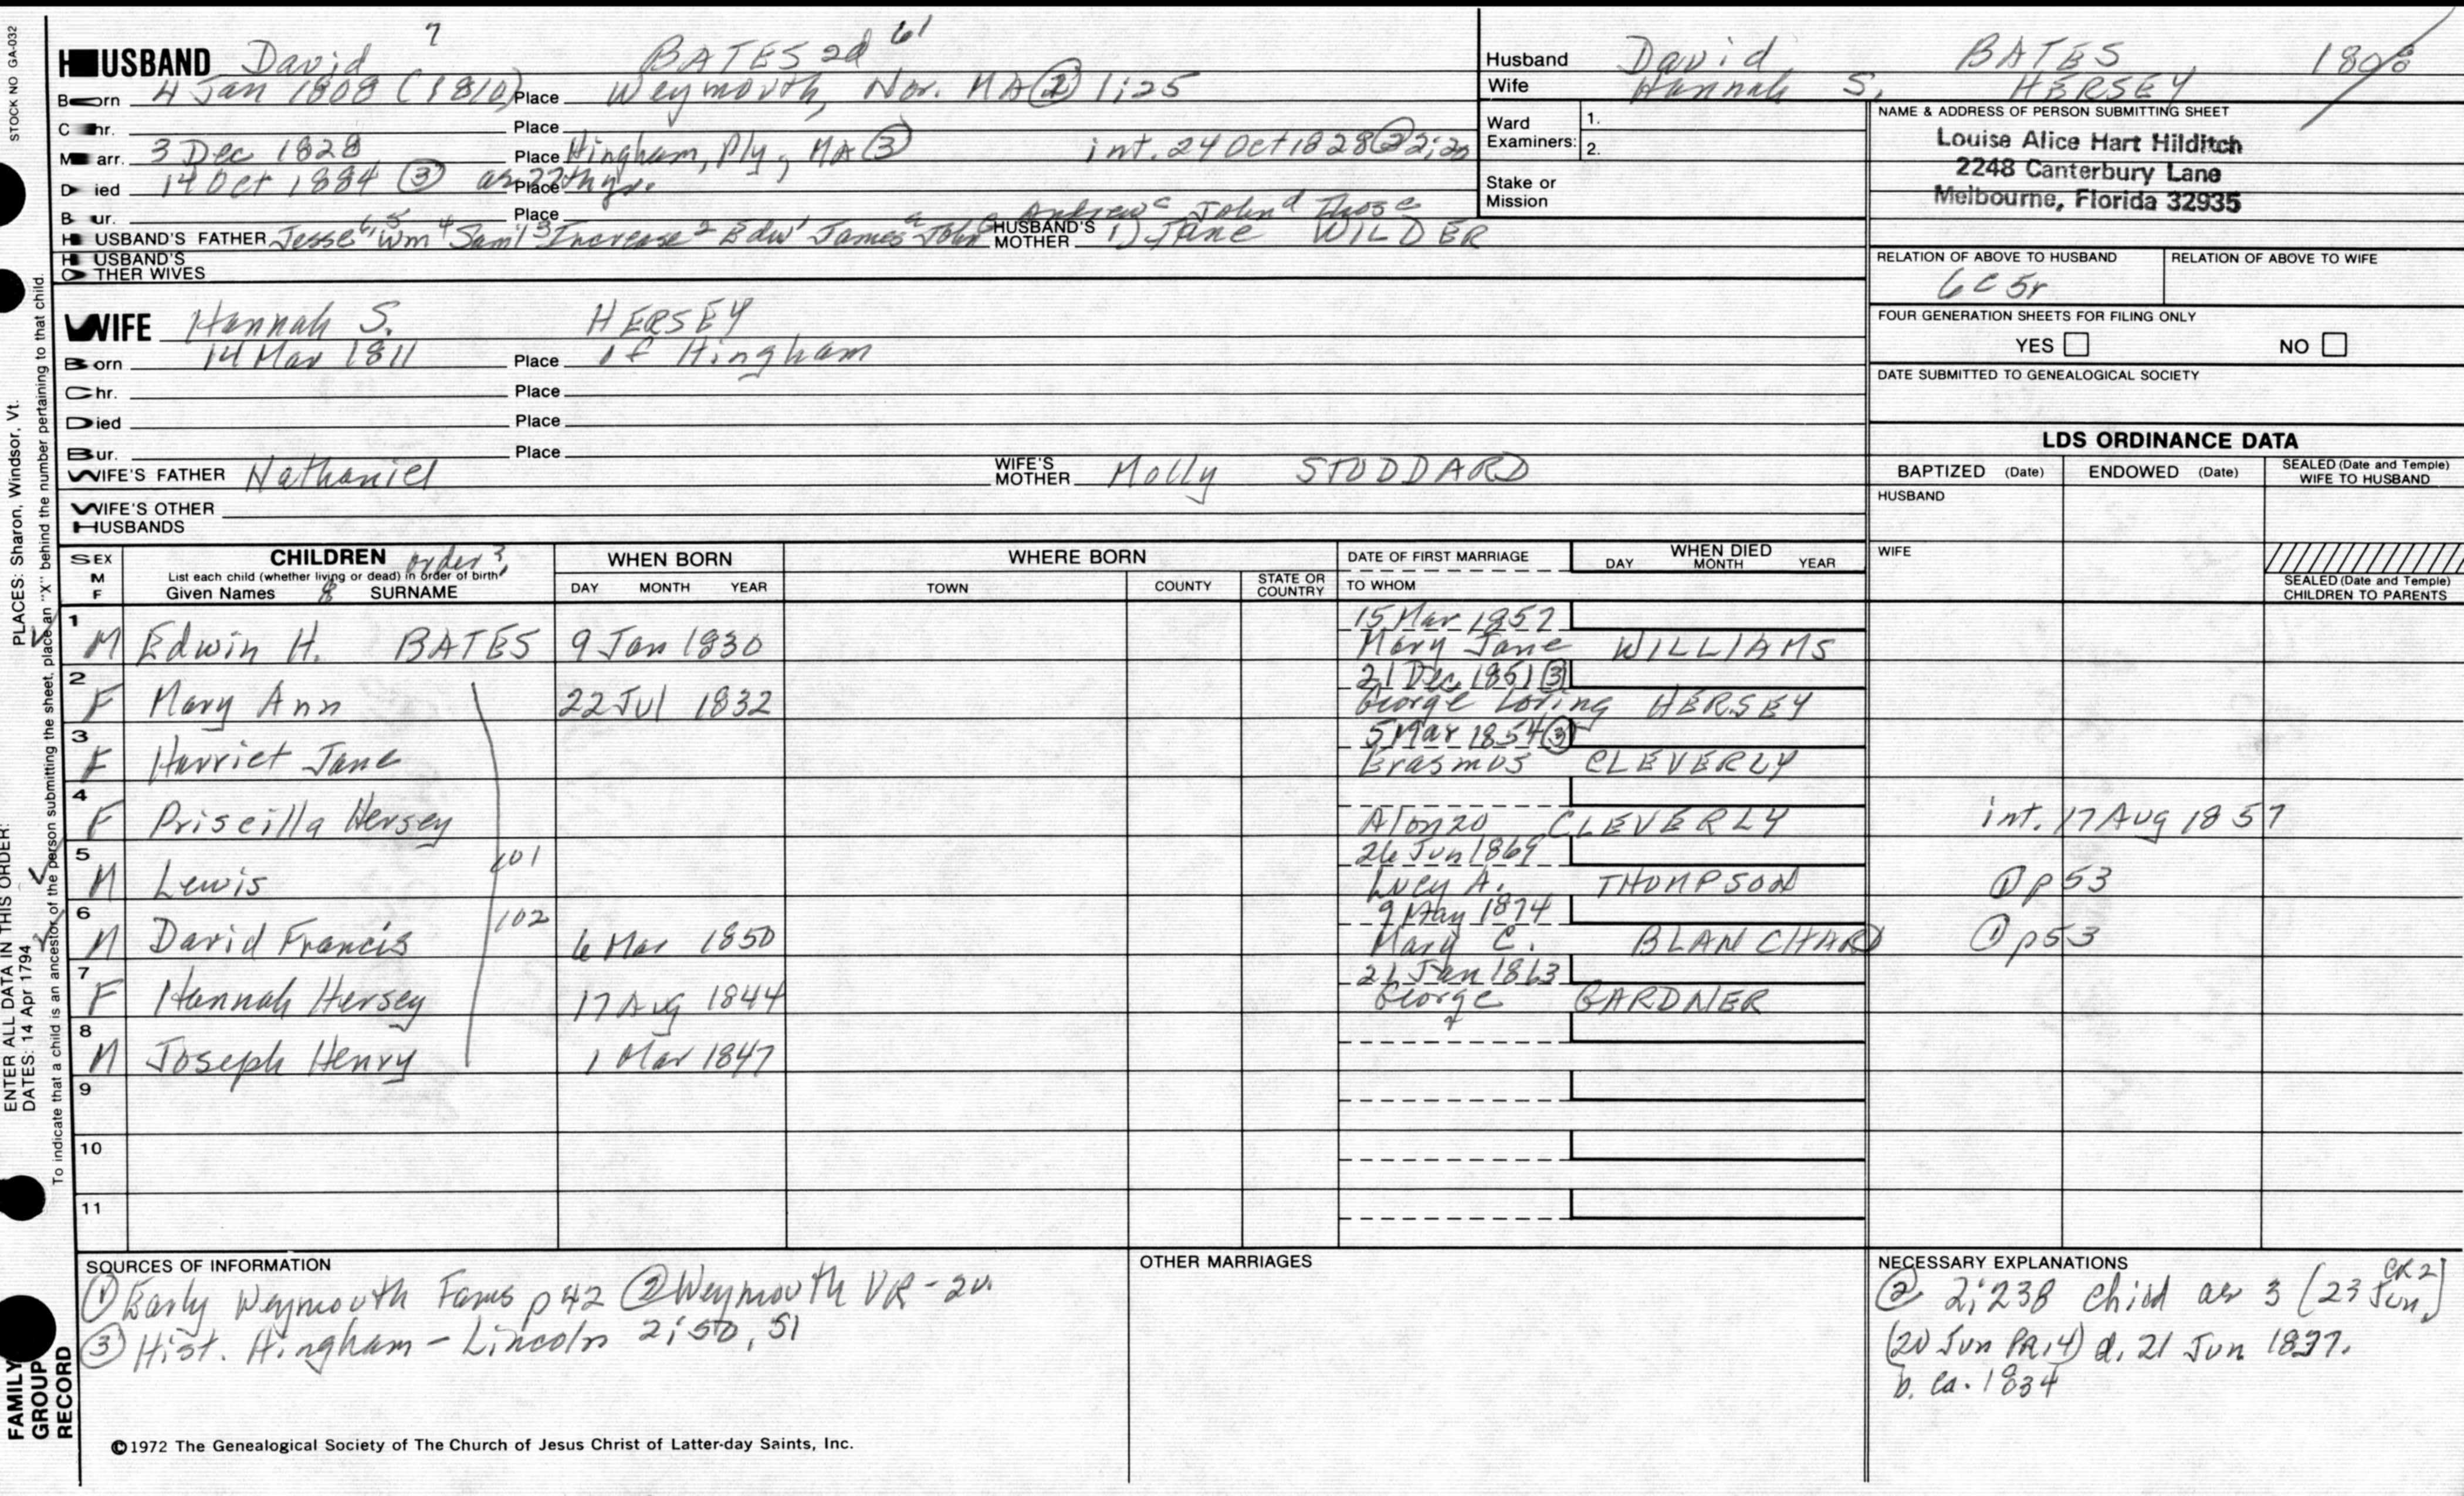 STOCK NO GA-032
HUSBAND David 7 BATES 2d 61
Born 4 Jan 1808 (1810) Place Weymouth, Nor. MA ② 1;25
Chr. Place
Marr. 3 Dec 1828 Place Hingham, Ply, MA ③ int. 24 Oct 1828 ② 2;20
Died 14 Oct 1884 ③ ae 77th yr. Place
Bur. Place
HUSBAND'S FATHER Jesse⁶, Wm⁵ Sam'l⁴ Increase³ Edw¹ James John HUSBAND'S MOTHER 1) Jane WILDER
Andrew c John d Thos e
HUSBAND'S OTHER WIVES
WIFE Hannah S. HERSEY
Born 14 Mar 1811 Place of Hingham
Chr. Place
Died Place
Bur. Place
WIFE'S FATHER Nathaniel WIFE'S MOTHER Molly STODDARD
WIFE'S OTHER HUSBANDS
Husband David BATES 1808
Wife Hannah S. HERSEY
Ward Examiners: 1.
2.
Stake or Mission
NAME & ADDRESS OF PERSON SUBMITTING SHEET
Louise Alice Hart Hilditch
2248 Canterbury Lane
Melbourne, Florida 32935
RELATION OF ABOVE TO HUSBAND RELATION OF ABOVE TO WIFE
6C 5r
FOUR GENERATION SHEETS FOR FILING ONLY
YES NO
DATE SUBMITTED TO GENEALOGICAL SOCIETY
LDS ORDINANCE DATA
BAPTIZED (Date) ENDOWED (Date) SEALED (Date and Temple) WIFE TO HUSBAND
HUSBAND
WIFE
SEALED (Date and Temple) CHILDREN TO PARENTS
SEX M F
CHILDREN order?
List each child (whether living or dead) in order of birth
Given Names 8 SURNAME
WHEN BORN
DAY MONTH YEAR
WHERE BORN
TOWN COUNTY STATE OR COUNTRY
DATE OF FIRST MARRIAGE
TO WHOM
WHEN DIED
DAY MONTH YEAR
1 15 Mar 1857
M Edwin H. BATES 9 Jan 1830 Mary Jane WILLIAMS
2 21 Dec 1851 ③
F Mary Ann 22 Jul 1832 George Loring HERSEY
3 5 Mar 1854 ③
F Harriet Jane Erasmus CLEVERLY
4
F Priscilla Hersey Alonzo CLEVERLY int. 17 Aug 1857
5 101 26 Jun 1869
M Lewis Lucy A. THOMPSON ① p53
6 102 9 May 1874
M David Francis 6 Mar 1850 Mary C. BLANCHARD ① p53
7 21 Jan 1863
F Hannah Hersey 17 Aug 1844 George GARDNER
8
M Joseph Henry 1 Mar 1847
9
10
11
SOURCES OF INFORMATION
① Early Weymouth Fams p 42 ② Weymouth VR - 2v.
③ Hist. Hingham - Lincoln 2;50, 51
OTHER MARRIAGES
NECESSARY EXPLANATIONS
② 2;238 child ae 3 (23 Jun CR2)
(20 Jun PR.4) d. 21 Jun 1837.
b. ca. 1834
©1972 The Genealogical Society of The Church of Jesus Christ of Latter-day Saints, Inc.
FAMILY GROUP RECORD
ENTER ALL DATA IN THIS ORDER:
DATES: 14 Apr 1794
PLACES: Sharon, Windsor, Vt.
To indicate that a child is an ancestor of the person submitting the sheet, place an "X" behind the number pertaining to that child.